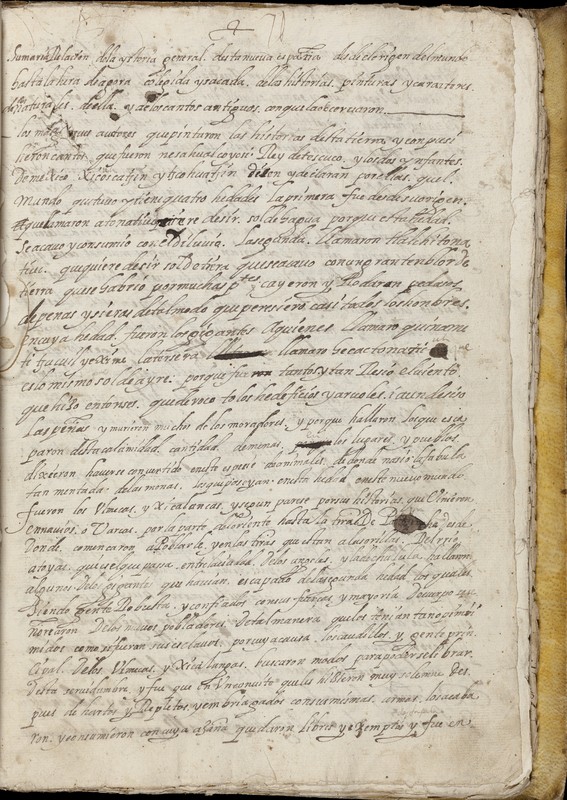 Sumaria Relasion de la ystoria general desta nueva españa desde el origen del mundo
hasta la hera de agora colegida y sacada de las historias pinturas y caracteres
de los naturales de ella y de los cantos antiguos con que la observaron
los mas graves autores que pintaron las historias desta tierra y conpusi
eron cantos que fueron nesahualcoyoti Rey de tescuco y los dos ynfantes
de mexico Xicoscatsin y declaran por ellas quel
mundo que tuvo y tiene quatro hedades la primera fue desde su origen
aque llamaron atonatiuh que quiere desir sol de agua porque esta hedad
se acavo y consumio con el diluvio la segunda llamaron tlalchitona
tiuc que quiere desir sol de tiera que se acavo con un gran tenblor de
tierra que se habrio por muchas ptes cayeron y Rodaran pedasos
de penas y sieras de tal modo que peresiero casi todos los honbres
en cuya hedad fueron los gigantes a quienes llamaro quiname
la tersera llamaro hecactonatiuc
es lo mismo sol de ayre porque fueron tantos y tan Resio el viento
que hiso entonses que deroco todos los hedeficios y arvoles i aun desiso
las peñas y murieron muchos de los moradores y porque hallaron los que esca
paron desta calamidad cantidad de monas los lugares y pueblos
dixeron haverse convertido en esta espesi de animales de donde nasio la fabula
tan mentada de las monas los que posyan en esta hedad en este nuevo mundo
fueron los Vlmecas y Xicalancas y segun parese por sus historias que Vinieron
en navios o Varcas por la parte del oriente hasta la tiera de ha desde
donde comensaron a Poblarle y en las tiras que estan a las orillas del rio
atoyac que es el que pasa entre la ciudad de los angeles y la de chulula hallaron
algunos de los gigantes que havian escapado de la segunda hedad los quales
siendo gente Robusta y confiados en sus fuersas y mayoria de cuerpo se
señorearon de los nuevos pobladores de tal manera que los tenian tan oprimi
midos como si fueran sus esclavos por cuya causa los caudillos y gente prin
cipal de los Vlmecas y Xicalangas buscaron modos para poderse librar
desta servidumbre y fue que en Vn conbite que les hisieron muy solemne des
pues de hartos y Repletos y embriagados con sus mismas armas los acaba
ron y consumieron con cuya asaña quedaron libres y esemptos y fue en